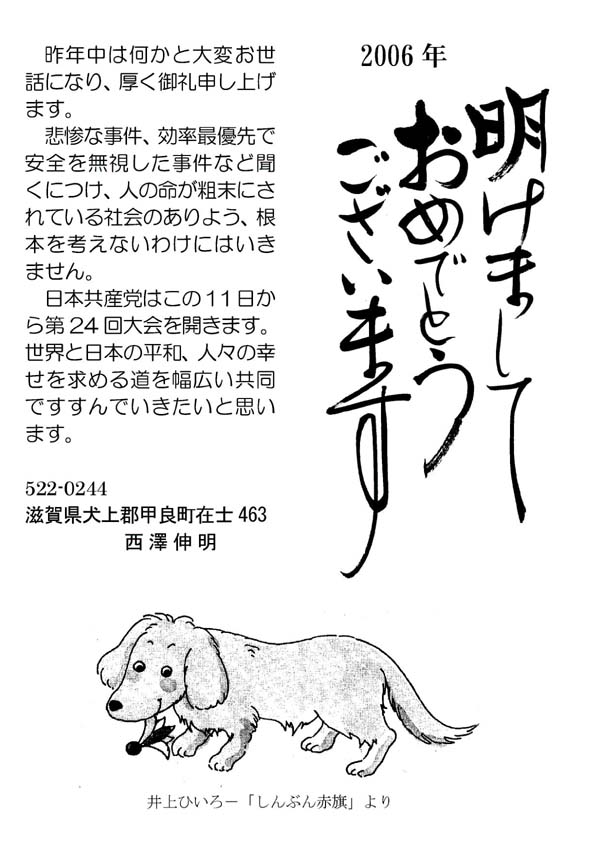 2006 年
明けまして
おめでとう
ございます
昨年中は何かと大変お世
話になり、厚く御礼申し上げ
ます。
悲惨な事件、効率最優先で
安全を無視した事件など聞
くにつけ、人の命が粗末にさ
れている社会のありよう、根
本を考えないわけにはいき
ません。
日本共産党はこの11日か
ら第24回大会を開きます。
世界と日本の平和、人々の幸
せを求める道を幅広い共同
ですすんでいきたいと思い
ます。
522-0244
滋賀県犬上郡甲良町在士463
西澤伸明
井上ひいろー「しんぶん赤旗」より